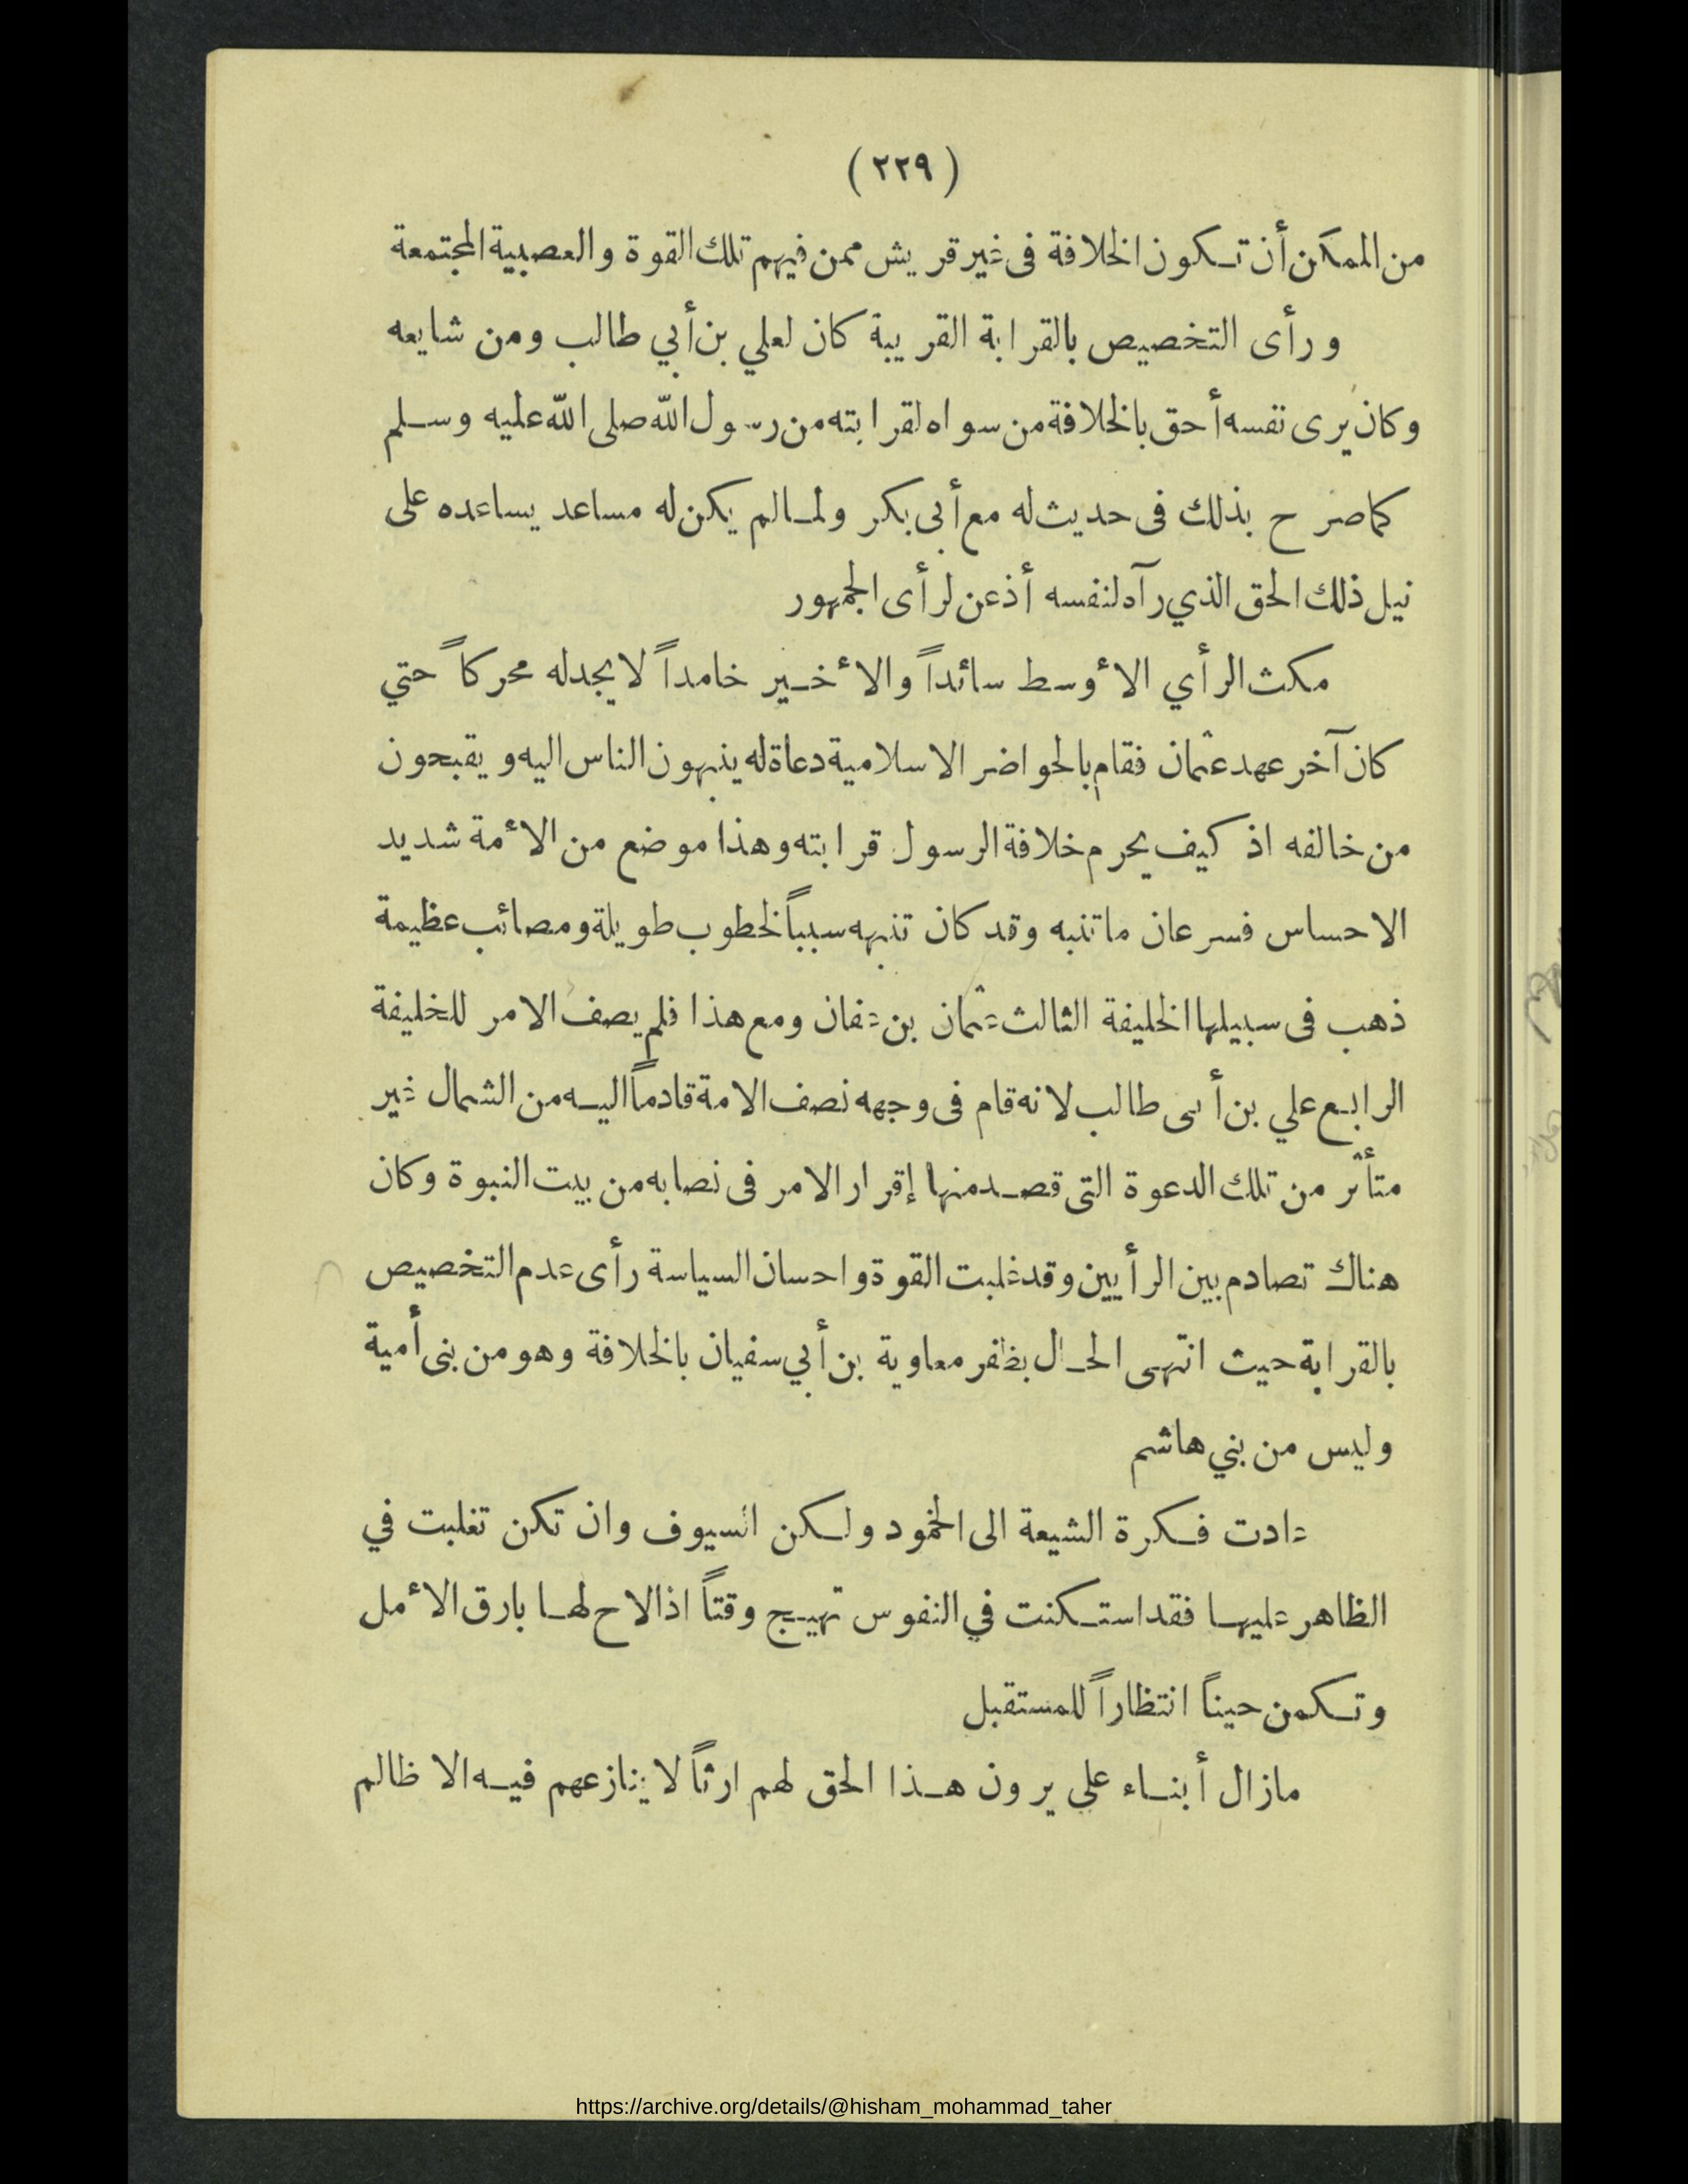 ( ٢٢٩ )
من الممكن أن تكون الخلافة فى غير قريش ممن فيهم تلك القوة والعصبية المجتمعة
ورأى التخصيص بالقرابة القريبة كان لعلي بن أبي طالب ومن شايعه
وكان يرى نفسه أحق بالخلافة من سواه لقرابته من رسول الله صلى الله عليه وسلم
كما صرح بذلك فى حديث له مع أبى بكر ولما لم يكن له مساعد يساعده على
نيل ذلك الحق الذي رآه لنفسه أذعن لرأى الجمهور
مكث الرأي الأوسط سائداً والأخير خامداً لا يجد له محركاً حتي
كان آخر عهد عثمان فقام بالحواضر الاسلامية دعاة له ينبهون الناس اليه ويقبحون
من خالفه اذ كيف يحرم خلافة الرسول قرابته وهذا موضع من الأمة شديد
الاحساس فسرعان ما تنبه وقد كان تنبهه سبباً لخطوب طويلة ومصائب عظيمة
ذهب فى سبيلها الخليفة الثالث عثمان بن عفان ومع هذا فلم يصف الامر للخليفة
الرابع علي بن أبى طالب لانه قام فى وجهه نصف الامة قادماً اليه من الشمال غير
متأثر من تلك الدعوة التى قصد منها إقرار الامر فى نصابه من بيت النبوة وكان
هناك تصادم بين الرأيين وقد غلبت القوة واحسان السياسة رأى عدم التخصيص
بالقرابة حيث انتهى الحال بظفر معاوية بن أبي سفيان بالخلافة وهو من بنى أمية
وليس من بني هاشم
عادت فكرة الشيعة الى الخمود ولكن السيوف وان تكن تغلبت في
الظاهر عليها فقد استكنت في النفوس تهيج وقتاً اذا لاح لها بارق الأمل
وتكمن حيناً انتظاراً للمستقبل
مازال أبناء على يرون هذا الحق لهم ارثاً لا ينازعهم فيه الا ظالم
https://archive.org/details/@hisham_mohammad_taher